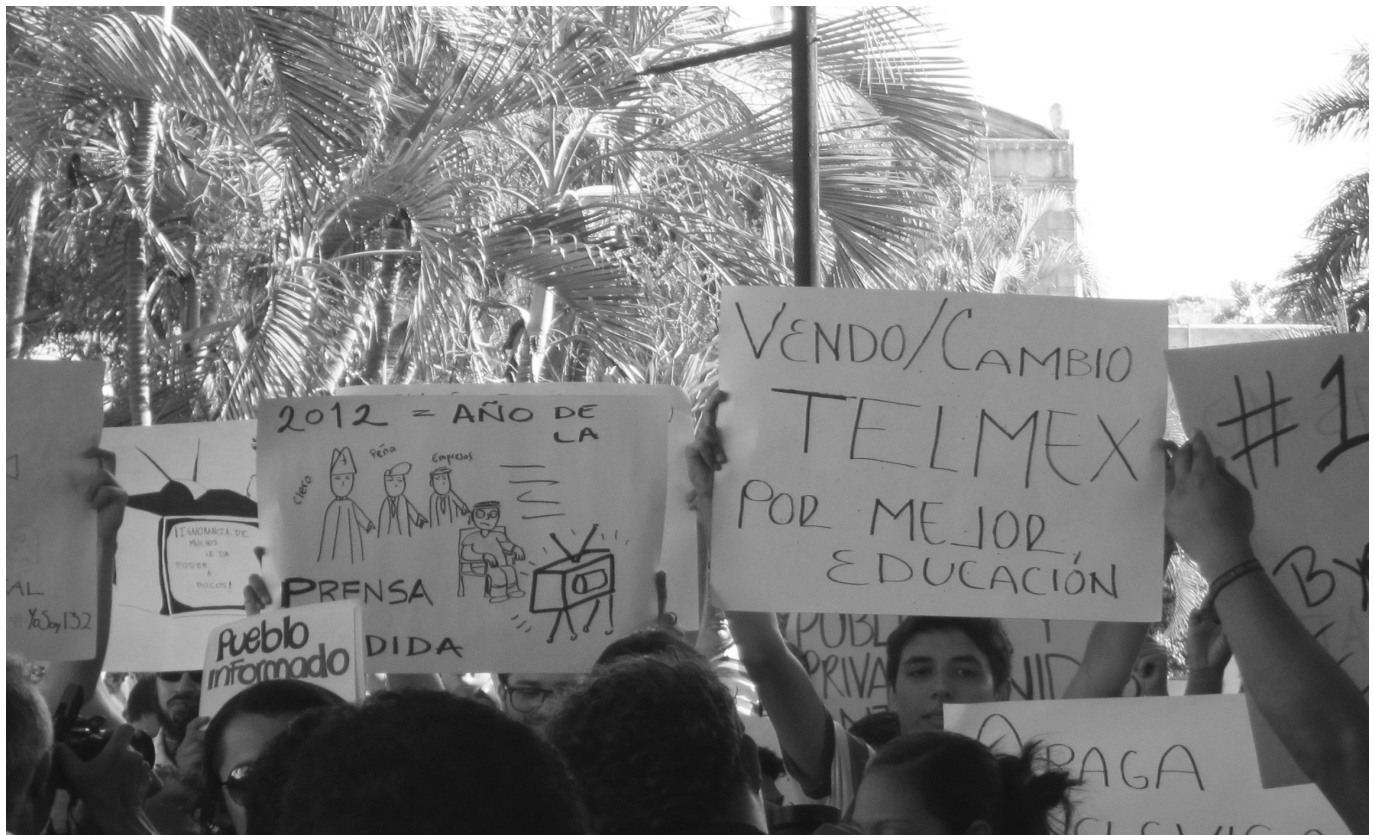 AL
#YoSoy132
¡IGNORANCIA DE
MUCHOS
LE DA
PODER
A
POCOS!
2012 = AÑO DE
LA
Clero
Peña
Empresas
PRENSA
DIDA
Pueblo
informado
VENDO/CAMBIO
TELMEX
POR MEJOR
EDUCACIÓN
PUBL Y
PRIVA NID
#1
By
APAGA